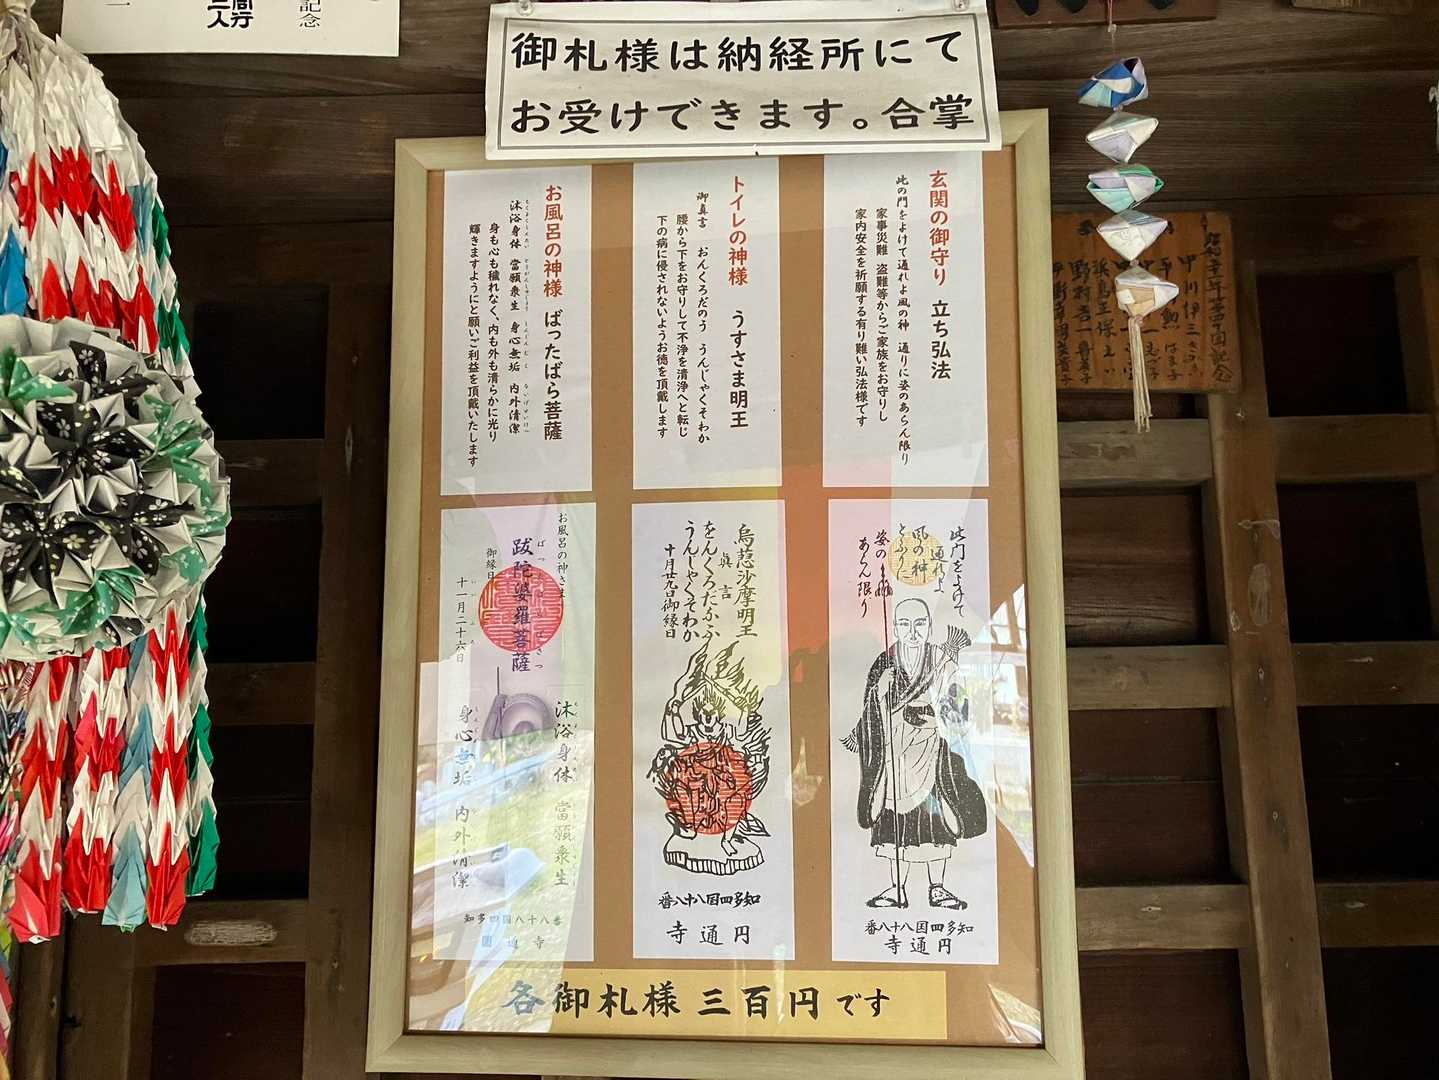 記念
一
二人
御札様は納経所にて
お受けできます。合掌
玄関の御守り 立ち弘法
此の門をよけて通れよ風の神 通りに姿のあらん限り
家事災難 盗難等からご家族をお守りし
家内安全を祈願する有り難い弘法様です
トイレの神様 うすさま明王
御真言 おんくろだのう うんじゃくそわか
腰から下をお守りして不浄を清浄へと転じ
下の病に侵されないようお徳を頂戴します
お風呂の神様 ばったばら菩薩
沐浴身体 當願衆生 身心無垢 内外清潔
身も心も穢れなく、内も外も清らかに光り
輝きますようにと願いご利益を頂戴いたします
此門をよけて
通れよ
風の神
とふりに
姿の
あらん限り
知多四国八十八番
円通寺
烏蒭沙摩明王
眞言
をんくろだふふ
うんじゃくそわか
十月廿九日御縁日
知多四国八十八番
円通寺
お風呂の神さま
跋陀婆羅菩薩
御縁日
十一月二十六日
沐浴身体 當願衆生
身心無垢 内外清潔
知多四国八十八番
圓通寺
各御札様 三百円です